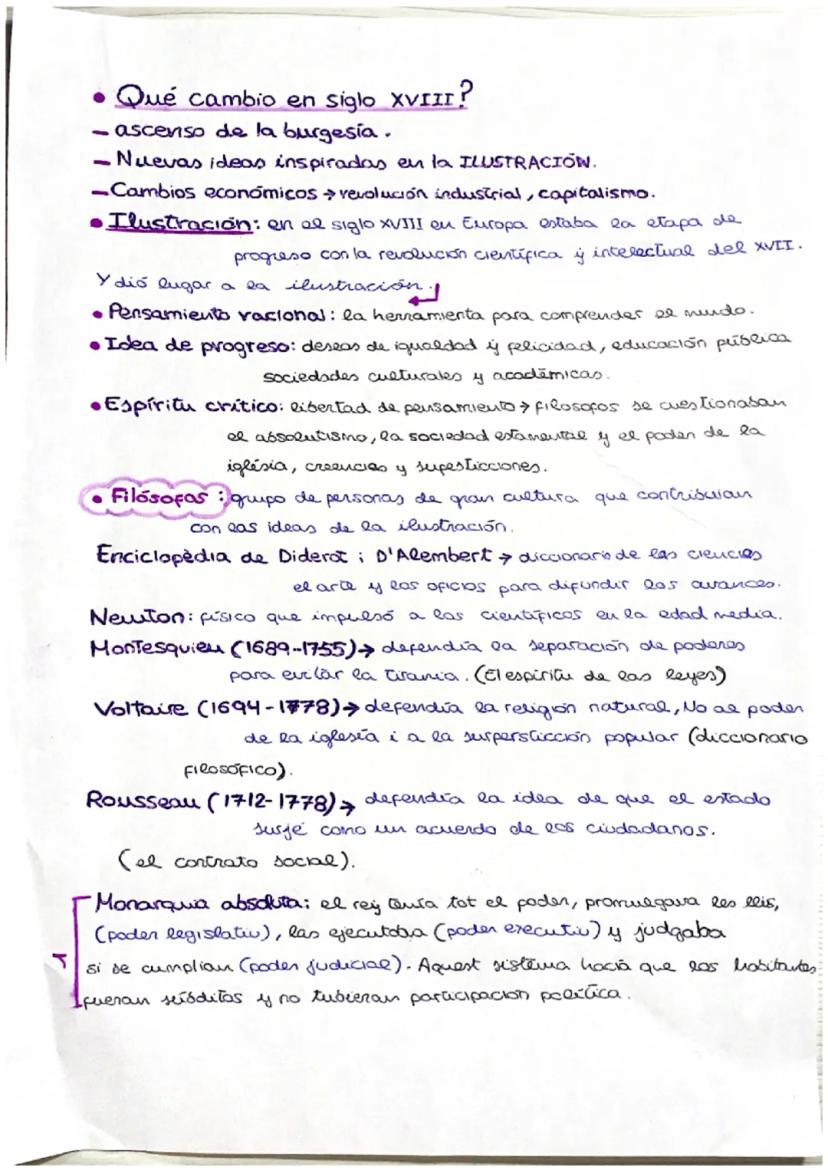 • Qué cambio en siglo XVIII?
- ascenso de la burgesía.
- Nuevas ideas inspiradas en la ILUSTRACIÓN.
- Cambios económicos → revolución industrial, capitalismo.
• Ilustración: en el siglo XVIII en Europa estaba la etapa de
progreso con la revolución científica y intelectual del XVII.
Y dió lugar a la ilustración.
• Pensamiento racional: la herramienta para comprender el mundo.
• Idea de progreso: deseos de igualdad y felicidad, educación pública
sociedades culturales y académicas.
• Espíritu crítico: libertad de pensamiento → filosofos se cuestionaban
el absolutismo, la sociedad estamental y el poder de la
iglésia, creencias y supesticciones.
• Filósofos: grupo de personas de gran cultura que contribuian
con las ideas de la ilustración.
Enciclopèdia de Diderot i D'Alembert → diccionario de las ciencias
el arte y los oficios para difundir los avances.
Newton: físico que impulsó a los científicos en la edad media.
Montesquieu (1689-1755) → defendía la separación de poderes
para evitar la tirania. (El espiritu de las leyes)
Voltaire (1694-1778) → defendía la religión natural, No al poder
de la iglesía i a la supersticción popular (diccionario
filosófico).
Rousseau (1712-1778) → defendía la idea de que el estado
surje como un acuerdo de los ciudadanos.
(el contrato social).
Monarquia absoluta: el rey tenía tot el poder, promulgava les lleis,
(poder legislatiu), las ejecutaba (poder executiu) y judgaba
si se cumplian (poder judicial). Aquest sistema hacía que los habitantes
fueran súbditos y no tubieran participación política.